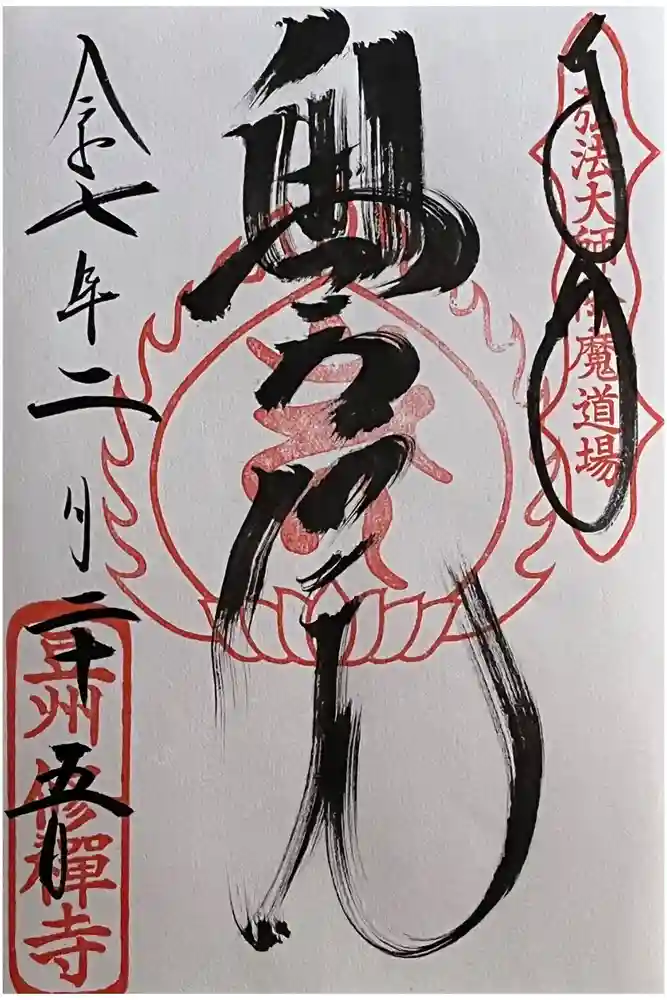 弘法大師降魔道場
奥之院
令和七年二月二十五日
豆州修禪寺